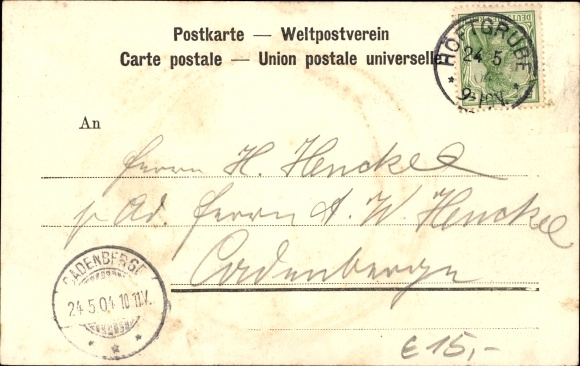 Postkarte — Weltpostverein
Carte postale — Union postale universelle
HÖFTGRUBE
24 5
04
9-10V.
An
Herrn H. Henckel
p. Ad. Herrn A. W. Henckel
Cadenberge
CADENBERGE
24.5.04 10-11V.
€15,-